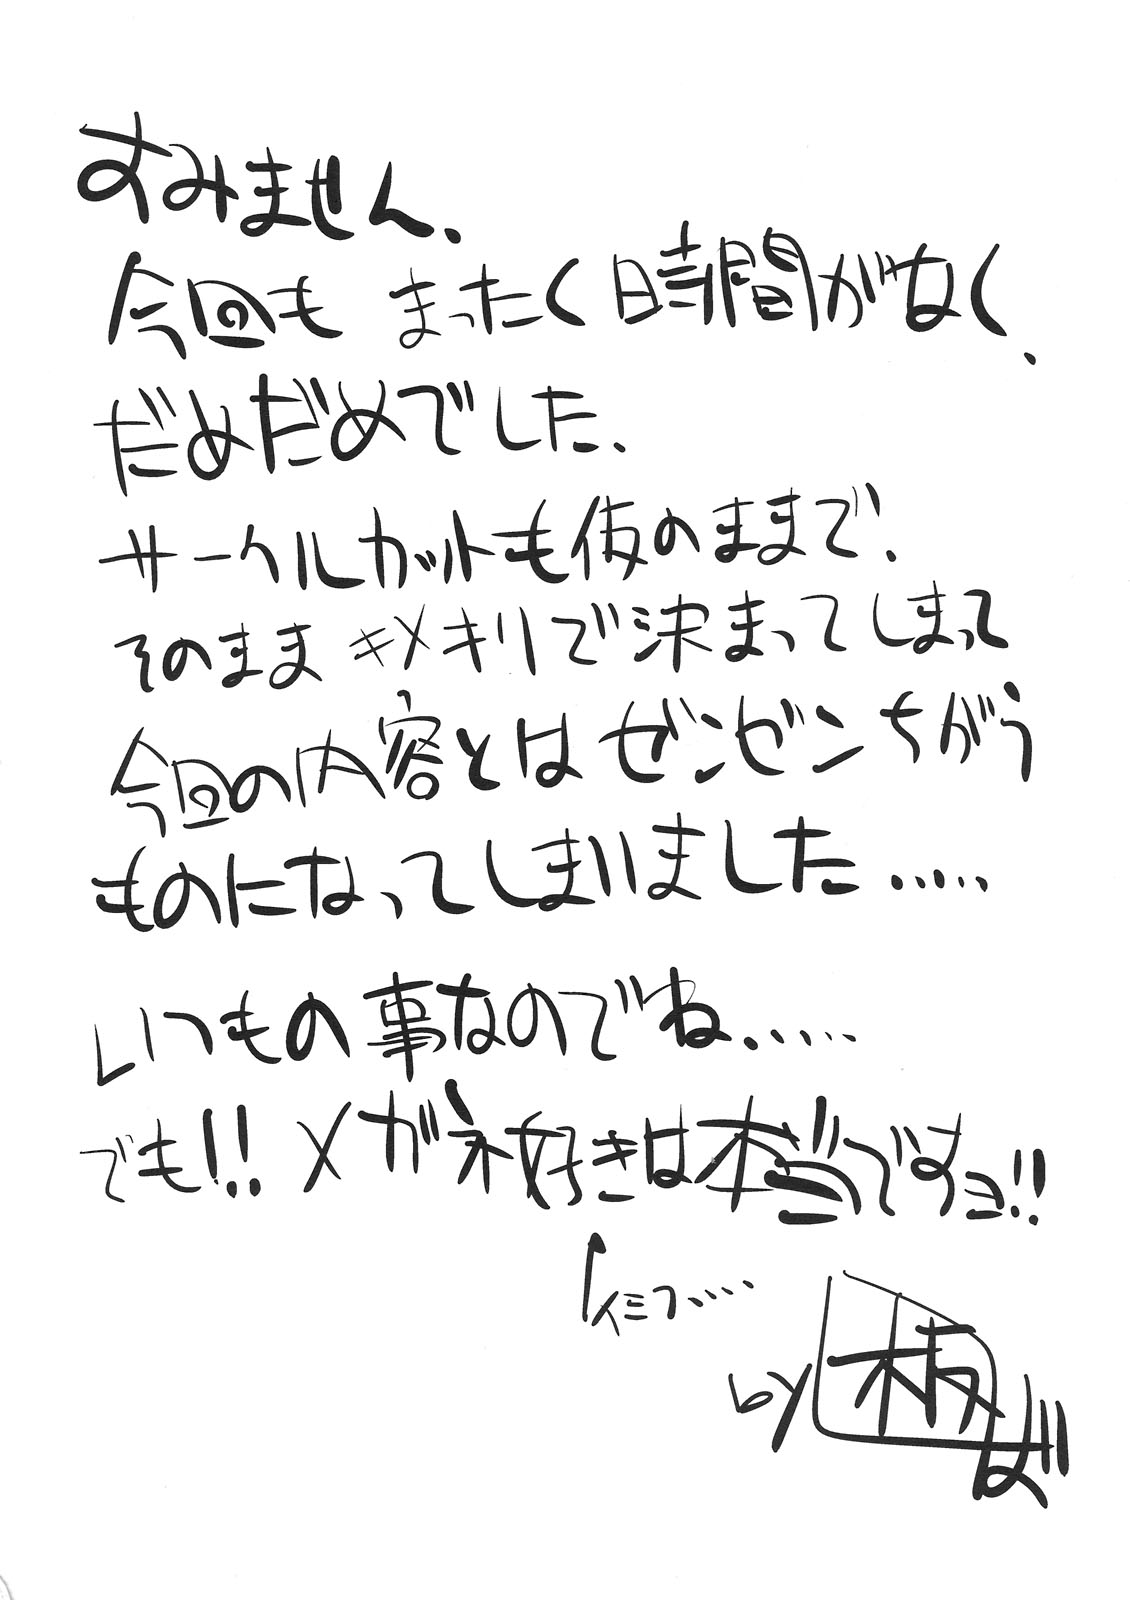 すみません.
今回も まったく時間がなく.
だめだめでした.
サークルカットも仮のままで.
そのまま キメキリで決まってしまって
今回の内容とはゼンゼンちがう
ものになってしまいました.....
いつもの事なのでね.....
でも!! メガネ好きは本当ですョ!!
イミフ....
by 板ば